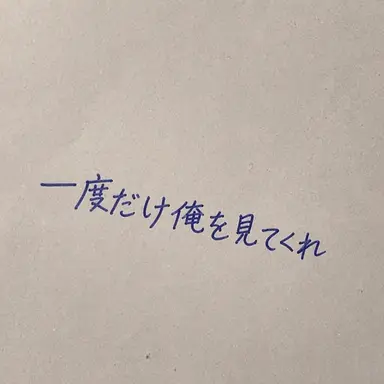 一度だけ俺を見てくれ